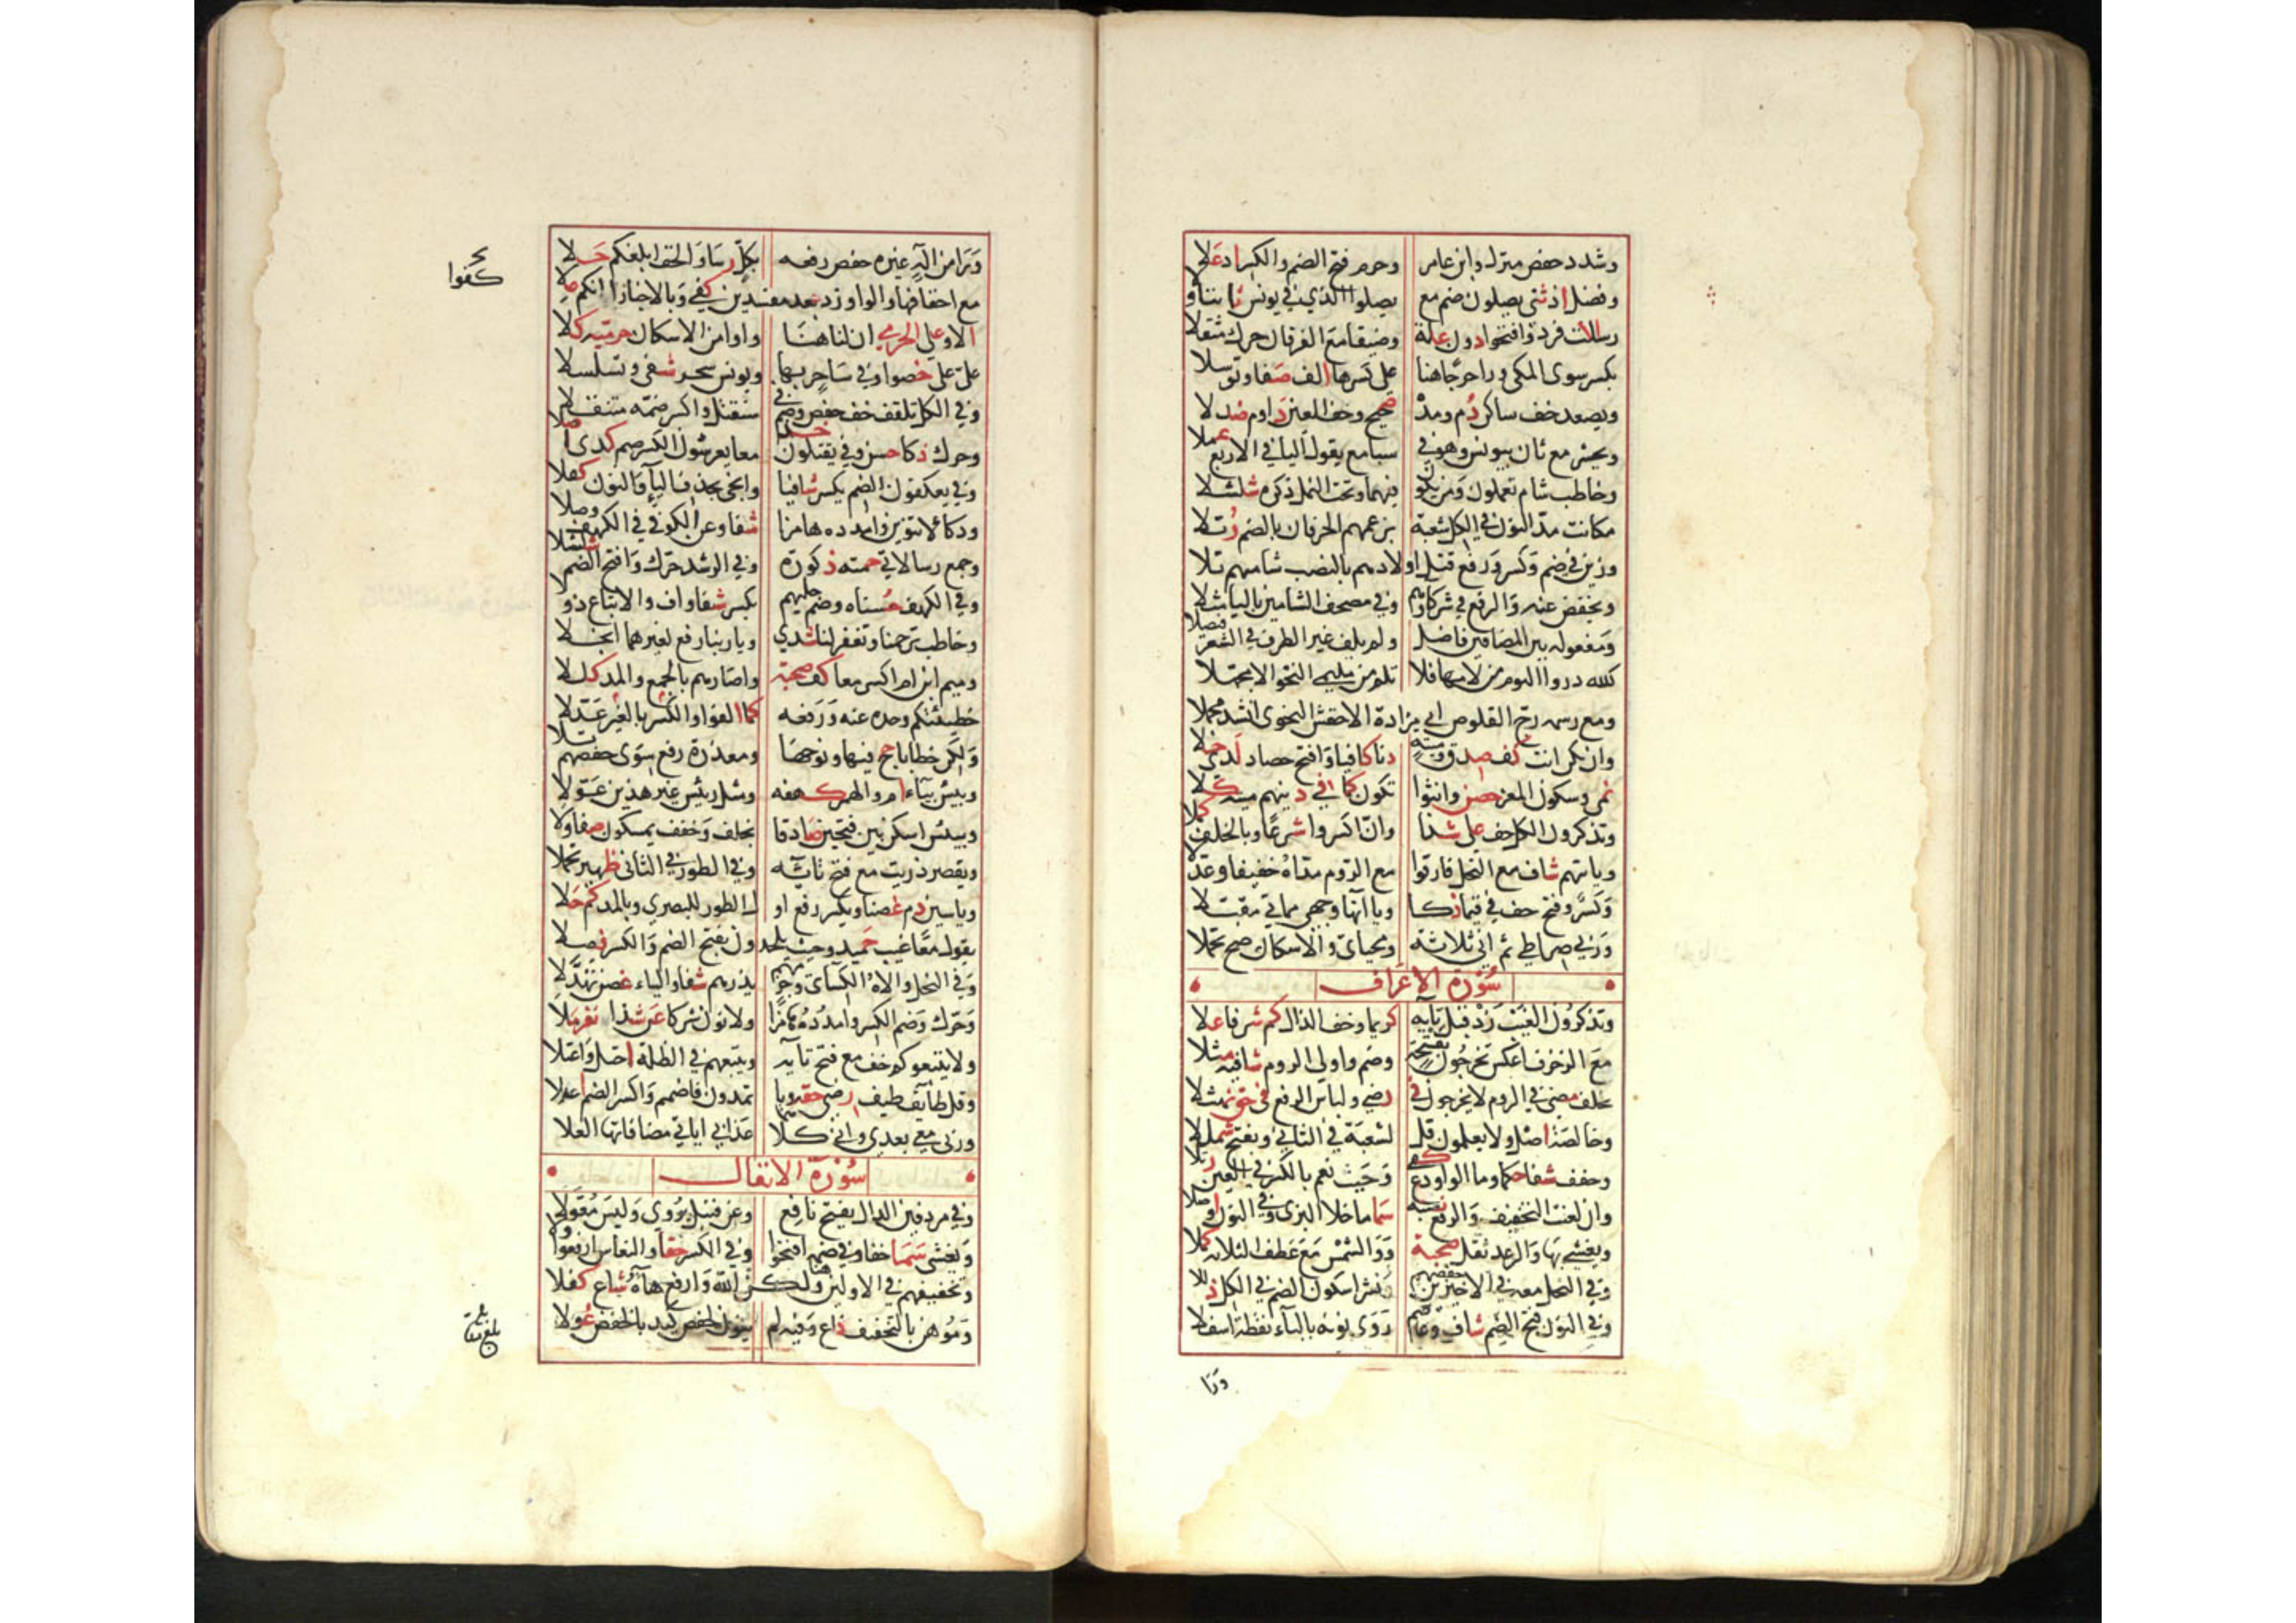 وشدد حفص منزل وابن عامر وحرم فتح الضم والكسر اذ علا
وفصل اذ ثنى يضلون ضم مع يضلوا الذي في يونس ثابتا ولا
رسالت فرد وافتحوا دون علة وضيقا مع الفرقان حرك مثقلا
بكسر سوى المكي ورا حرجا هنا على كسرها الف صفا وتوسلا
ويصعد خف ساكن دم ومد صحيح وخف العين داوم صندلا
ويحشر مع ثان بيونس وهو في سبا مع يقول اليا في الاربع عملا
وخاطب شام تعملون ومن يكو فيهما وتحت النمل ذكره شلشلا
مكانت مد النون في الكل شعبة بزعمهم الحرفان بالضم رتلا
وزين في ضم وكسر ورفع قتل اولادهم بالنصب شاميهم تلا
ويخفض عنه والرفع في شركاؤهم وفي مصحف الشامين باليا مثلا
ومفعوله بين المضافين فاصل ولم يلف غير الظرف في الشعر فيصلا
كلله در اليوم من لامها فلا تلم من مليمي النحو الا مجهلا
ومع رسمه زج القلوص ابي مزادة الاخفش النحوي انشد مجملا
وان تكن انث كف صدق وميتة دنا كافيا وافتح حصاد كذي حلا
نمى وسكون المعز حصن وانثوا تكون كما في دينهم ميتة كلا
وتذكرون الكل خف على شذا وان اكسروا شرعا وبالخف كملا
وياتيهم شاف مع النحل فارقوا مع الروم مداه خفيفا وعدلا
وكسر وفتح خف في قيما ذكا ويا آتها وجهي مماتي مقبلا
وربي صراطي ثم اني ثلاثة ومحياي والاسكان صح تحملا
سورة الاعراف
وتذكرون الغيب زد قبل تايه كريما وخف الذال كم شرفا علا
مع الزخرف اعكس تخرجون بفتحة وضم واولى الروم شافيه مثلا
بخلف مضى في الروم لا يخرجون في رضى ولباس الرفع في حق نهشلا
وخالصة اصل ولا يعلمون قل لشعبة في الثاني ويفتح شمللا
وخفف شفا حكما وما الواو دع كفى وحيث نعم بالكسر في العين رتلا
وان لعنة التخفيف والرفع نصه سما ما خلا البزي وفي النور اوصلا
ويغشي بها والرعد ثقل صحبة ووالشمس مع عطف الثلاثة كملا
وفي النحل معه في الاخيرين حفصهم ونشرا سكون الضم في الكل ذللا
وفي النون فتح الضم شاف وعاصم روى نونه بالباء نقطة اسفلا
ورا
ورا من اله غيره خفض رفعه بكل رسا والخف ابلغكم حلا
كفوا
مع احقافها والواو زد بعد مفسدين كفي وبالاخبار انكم علا
الا وعلى الحرمي ان لنا هنا واو امن الاسكان حرميه كلا
علي على خصوا وفي ساحر بها ويونس سحار شفى وتسلسلا
وفي الكل تلقف خف حفص وضم في سنقتل واكسر ضمه متثقلا
وحرك ذكا حسن وفي يقتلون خذ معا يعرشون الكسر ضم كذي صلا
وفي يعكفون الضم يكسر شافيا وانجى بحذف الياء والنون كفلا
ودكاء لا تنوين وامدده هامزا شفا وعن الكوفي في الكهف وصلا
وجمع رسالاتي حمته ذكوره وفي الرشد حرك وافتح الضم شلشلا
وفي الكهف حسناه وضم حليهم بكسر شفا واف والاتباع ذو حلا
وخاطب ترحمنا وتغفر لنا شذي ويا ربنا رفع لغيرهما انجلا
وميم ابن ام اكسر معا كف صحبة واصارهم بالجمع والمد كللا
خطيئتكم وحده عنه ورفعه كما الفوا والكسر بالغير عدلا
ولكن خطايا حج فيها ونوحها ومعذرة رفع سوى حفصهم تلا
وبيس بياء ام والهمز كهفه ومثل رئيس غير هذين عولا
وبيئس اسكن بين فتحين صادقا بخلف وخفف يمسكون صفا ولا
ويقصر ذريت مع فتح تائه وفي الطور في الثاني ظهير تحملا
وياسين دم غصنا ويكسر رفع او ل الطور للبصري وبالمد كم حلا
يقول معا غيب حميد وحيث يلحدون بفتح الضم والكسر فصلا
وفي النحل والاه الكساى وجزمهم يذرهم شفا والياء غصن تهدلا
وحرك وضم الكسر وامدده هامزا ولا نون شركا عن شذا نفر ملا
ولا يتبعوكم خف مع فتح بائه ويتبعهم في الظلة احتل واعتلا
وقل طائف طيف رضى حقه ويا يمدون فاضمم واكسر الضم اعدلا
وربي معي بعدي واني كلا عذابي اياتي مضافاتها العلا
سورة الانفال
وفي مردفين الدال يفتح نافع وعن قنبل يروى وليس معولا
ويغشى سما خفا وفي ضمه افتحوا وفي الكسر حقا والنعاس ارفعوا ولا
وتخفيفهم في الاولين هنا ولكن الله وارفع هاءه شاع كفلا
وموهن بالتخفيف ذاع وفيه لم ينون لحفص كيد بالخفض عولا